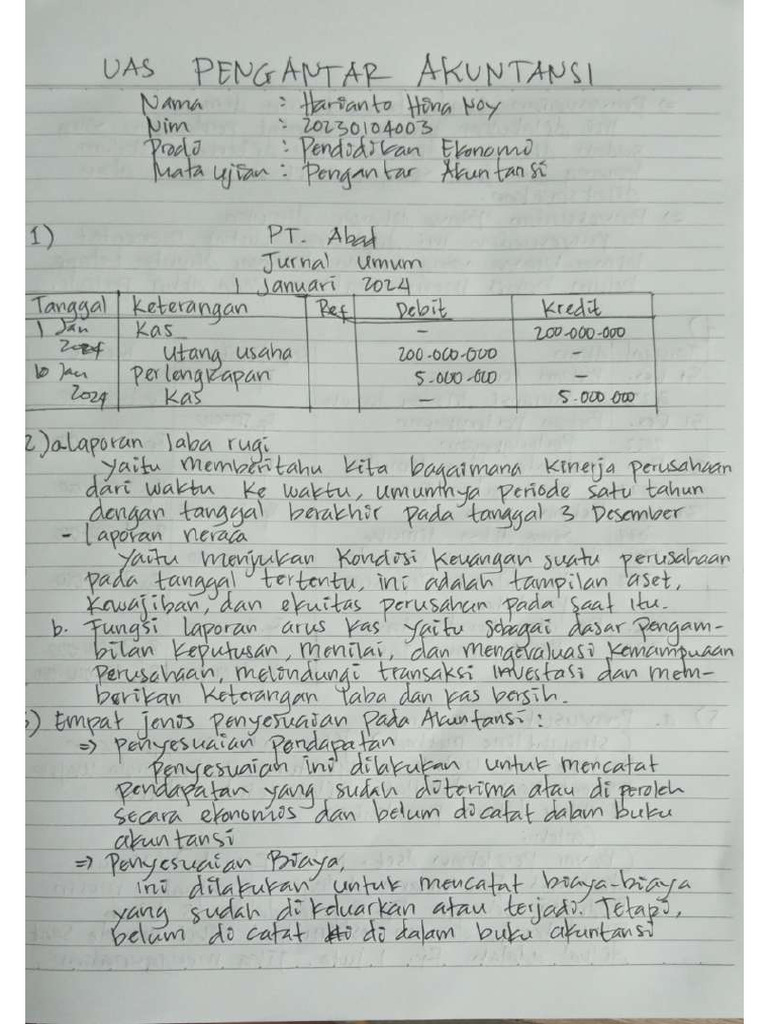 UAS PENGANTAR AKUNTANSI
Nama : Harianto Hina Noy
Nim : 20230104003
Prodi : Pendidikan Ekonomi
Mata ujian : Pengantar Akuntansi
1) PT. Abad
Jurnal Umum
1 Januari 2024
Tanggal Keterangan Ref Debit Kredit
1 Jan Kas - 200.000.000
2024 Utang usaha 200.000.000 -
10 Jan Perlengkapan 5.000.000 -
2024 Kas - 5.000.000
2) a Laporan laba rugi
yaitu memberitahu kita bagaimana kinerja perusahaan
dari waktu ke waktu, umumnya periode satu tahun
dengan tanggal berakhir pada tanggal 3 Desember
- laporan neraca
yaitu menjukan kondisi keuangan suatu perusahaan
pada tanggal tertentu, ini adalah tampilan aset,
kewajiban, dan ekuitas perusahan pada saat itu.
b. Fungsi laporan arus kas yaitu sebagai dasar pengam-
bilan keputusan, menilai, dan mengevaluasi kemampuaan
perusahaan, melindungi transaksi investasi dan mem-
berikan keterangan laba dan kas bersih.
3) Empat jenis penyesuaian pada Akuntansi :
=> penyesuaian Pendapatan
penyesuaian ini dilakukan untuk mencatat
pendapatan yang sudah diterima atau di peroleh
secara ekonomis dan belum dicatat dalam buku
akuntansi
=> Penyesuaian Biaya,
ini dilakukan untuk mencatat biaya-biaya
yang sudah di keluarkan atau terjadi. Tetapi,
belum di catat di dalam buku akuntansi